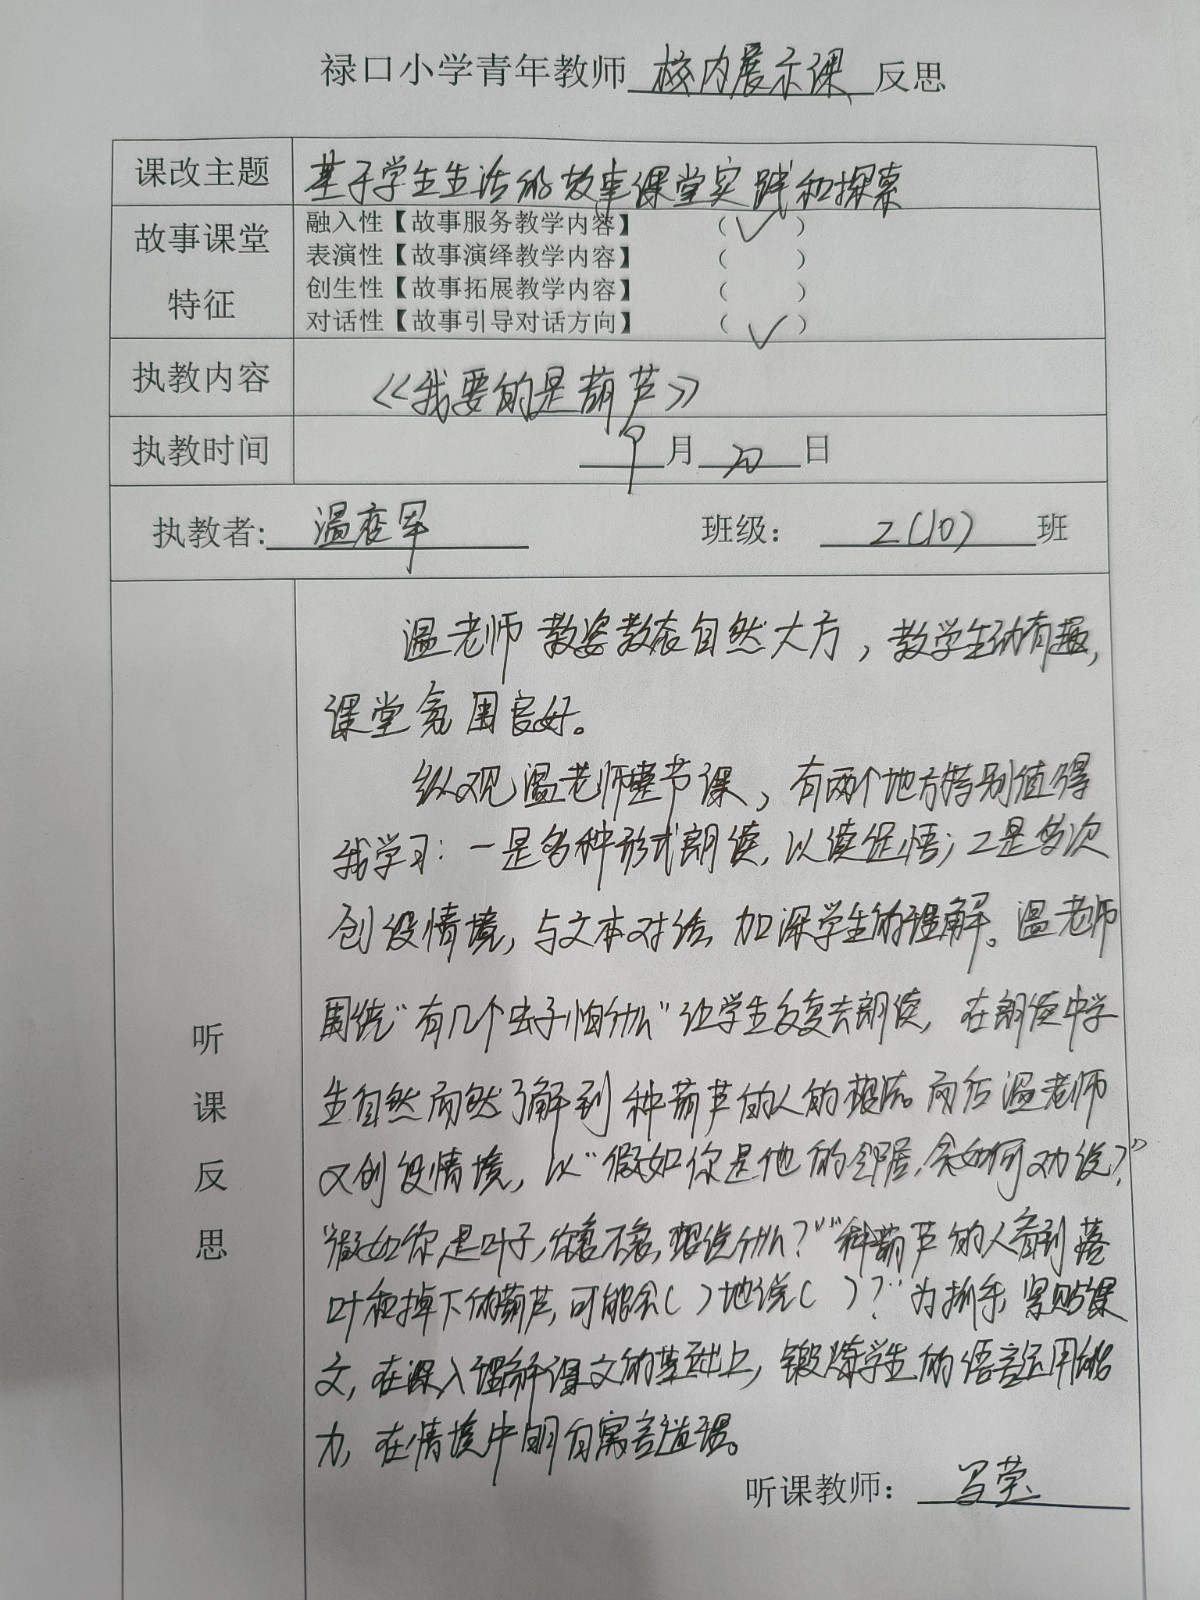 禄口小学青年教师校内展示课反思
课改主题 基于学生生活的故事课堂实践和探索
故事课堂特征
融入性【故事服务教学内容】 (✓)
表演性【故事演绎教学内容】 ( )
创生性【故事拓展教学内容】 ( )
对话性【故事引导对话方向】 (✓)
执教内容 《我要的是葫芦》
执教时间 9月20日
执教者: 温 班级: 2(10)班
听课反思
温老师教姿教态自然大方,教学生动有趣,
课堂氛围良好。
纵观温老师整节课,有两个地方特别值得
我学习:一是多种形式朗读,以读促悟;2是多次
创设情境,与文本对话,加深学生的理解。温老师
围绕“有几个虫子怕什么”让学生反复去朗读,在朗读中学
生自然而然了解到种葫芦的人的想法。而后温老师
又创设情境,以“假如你是他的邻居,会如何劝说?”
“假如你是叶子,你急不急,想说什么?”“种葫芦的人看到落
叶和掉下的葫芦,可能会( )地说( )?”为抓手,紧贴课
文,在深入理解课文的基础上,锻炼学生的语言运用能
力,在情境中明白寓言道理。
听课教师: 马莹